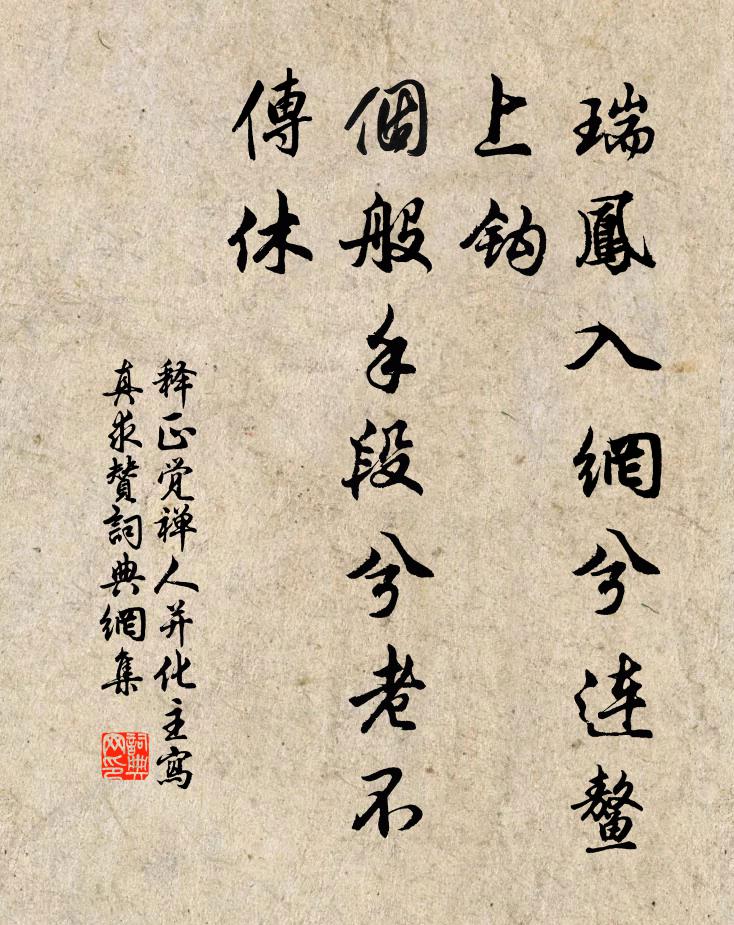 瑞鳳入網兮連鰲
上鈎
個般手段兮老不
傳休
释正觉禅人并化主寫
真求贊詞典網集
詞典網印